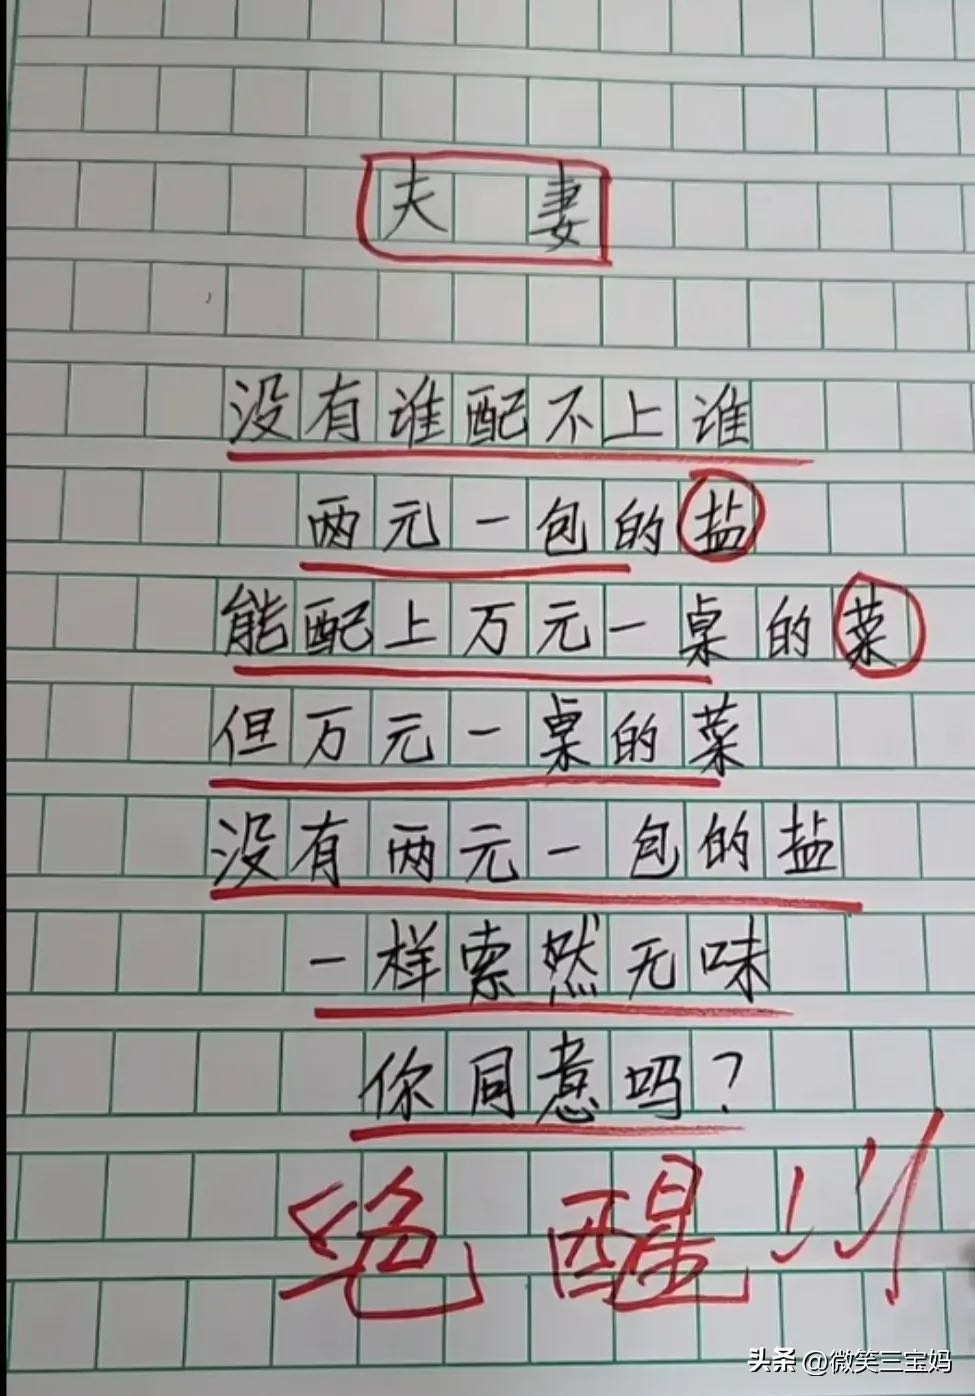 夫 妻
没有谁配不上谁
两元一包的盐
能配上万元一桌的菜
但万元一桌的菜
没有两元一包的盐
一样索然无味
你同意吗?
绝醒!!!
头条 @微笑三宝妈